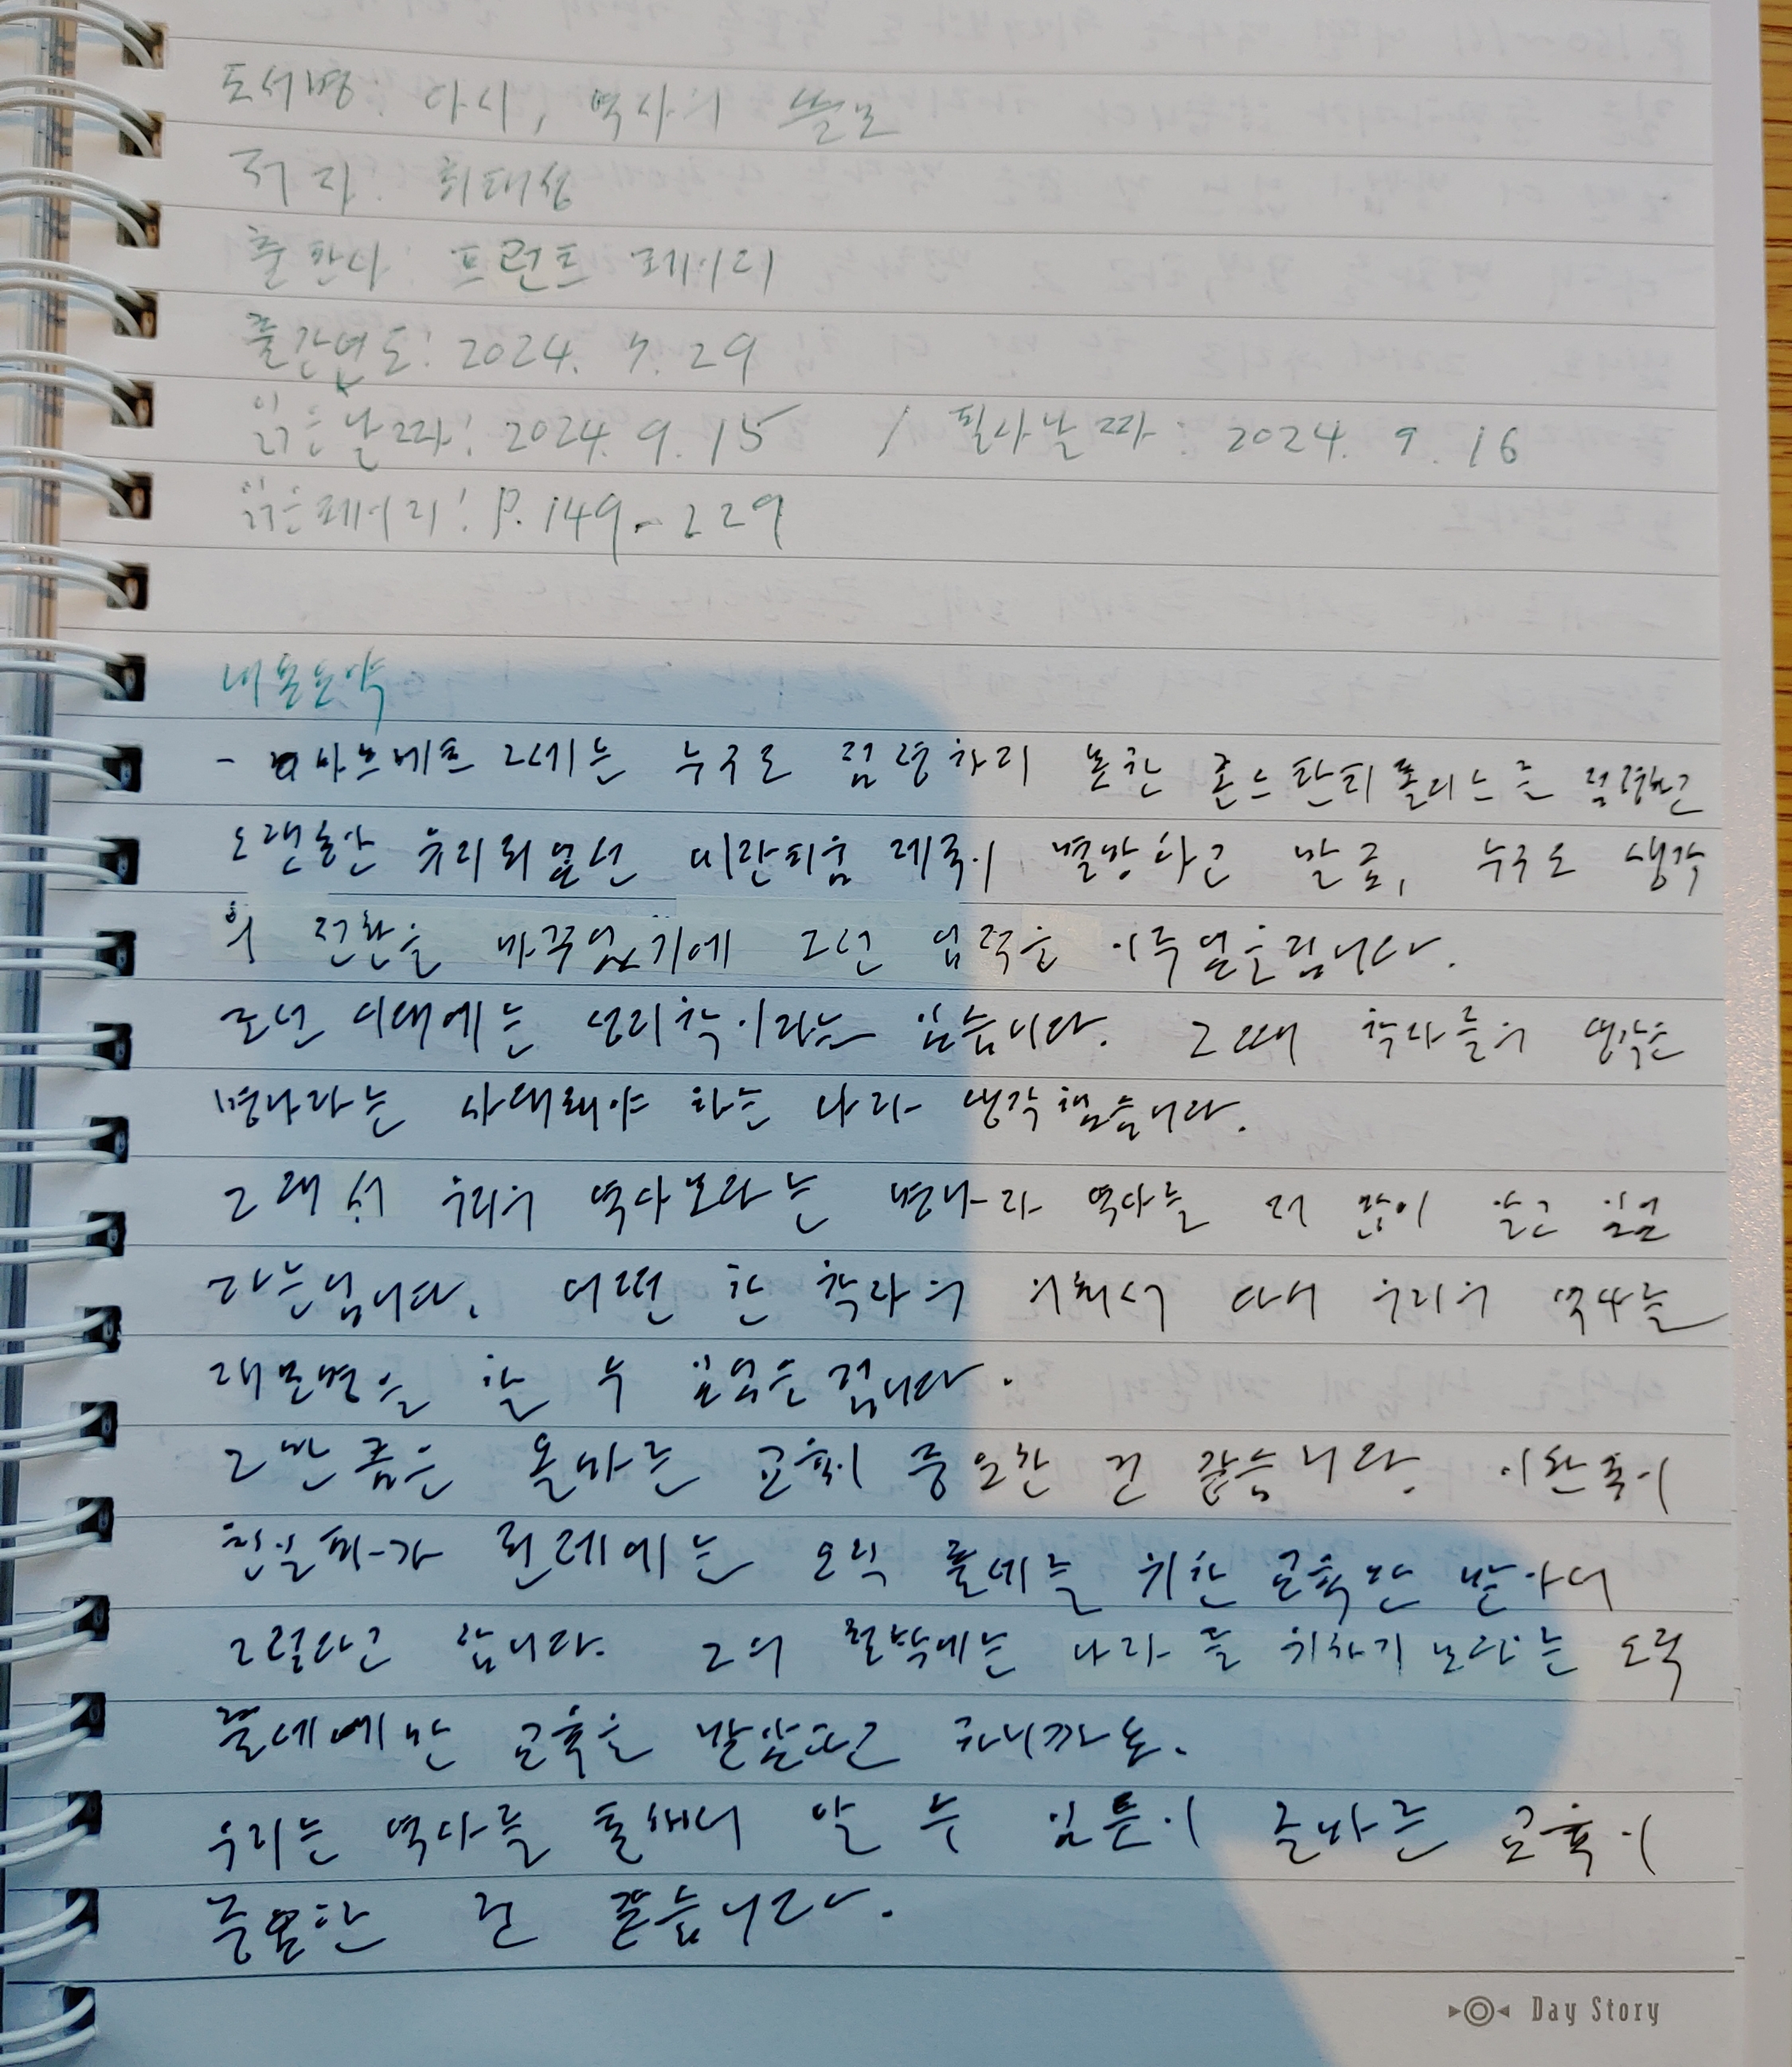 도서명: 다시, 역사의 쓸모
저자: 최태성
출판사: 프런트 페이지
출간년도: 2024. 7. 29
읽은날짜: 2024. 9. 15 / 필사날짜: 2024. 9. 16
읽은페이지: P. 149 - 229
내용요약
- 마흐메트 2세는 누구도 점령하지 못한 콘스탄티폴리스를 점령했고
오랫동안 유지되었던 비잔티움 제국이 멸망하고 말죠, 누구도 생각
의 전환을 바꾸었기에 그런 업적을 이루었을겁니다.
조선 시대에는 성리학이라는 있습니다. 그때 학자들의 생각은
명나라는 사대해야 하는 나라 생각했습니다.
그래서 우리의 역사보다는 명나라 역사를 더 많이 알고 있었
다는겁니다. 어떤 한 학자의 의해서 다시 우리의 역사를
재조명을 할 수 있었는겁니다.
그만큼은 올바른 교육이 중요한 것 같습니다. 이완용이
친일파가 된데에는 오직 출세를 위한 교육만 받아서
그렇다고 합니다. 그의 천박에는 나라를 위하기보다는 오직
출세에만 교육을 받았다고 하니까요.
우리는 역사를 통해서 알 수 있듯이 올바른 교육이
중요한 것 같습니다.
Day Story